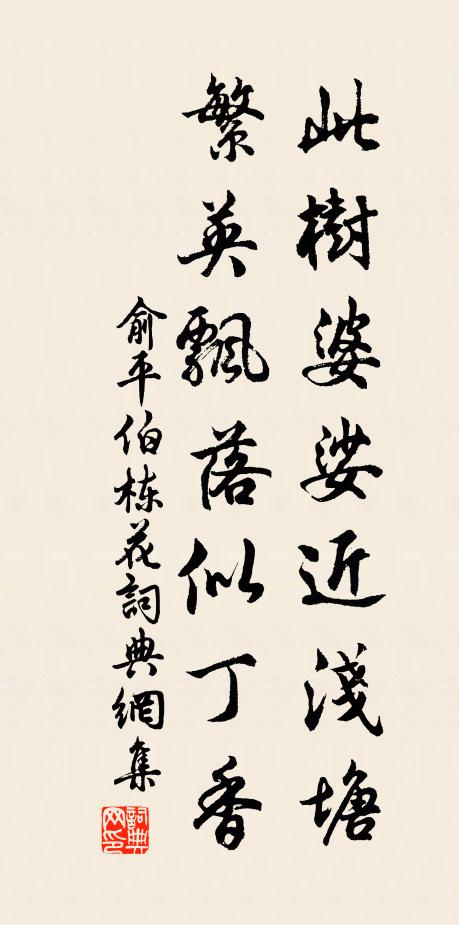 此樹婆娑近淺塘
繁英飄落似丁香
俞平伯栋花詞典網集
詞典网印